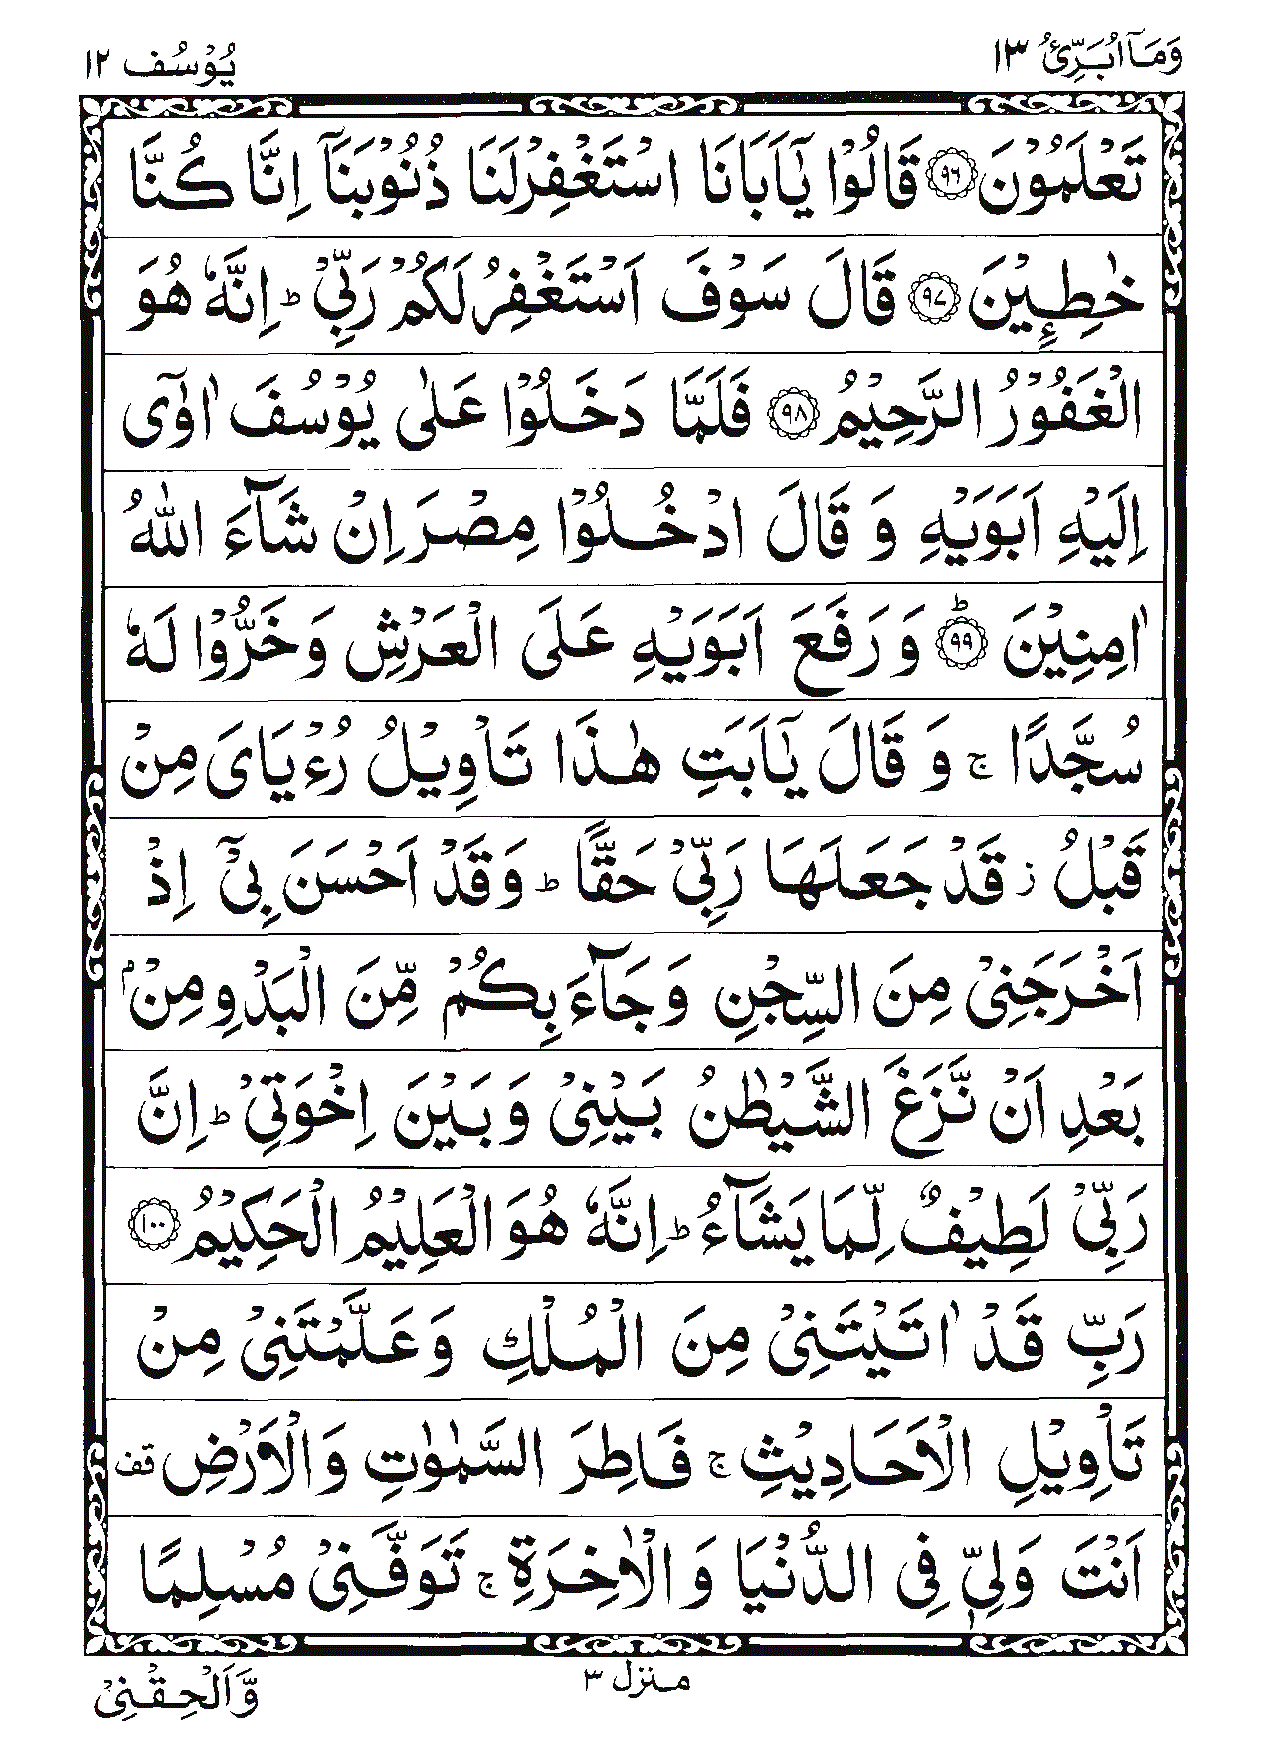 وَمَآ اُبَرِّئُ ١٣
یُوْسُف ١٢
تَعْلَمُوْنَ ﴿۹۶﴾ قَالُوْا یٰۤاَبَانَا اسْتَغْفِرْلَنَا ذُنُوْبَنَاۤ اِنَّا كُنَّا
خٰطِـِٕیْنَ ﴿۹۷﴾ قَالَ سَوْفَ اَسْتَغْفِرُ لَكُمْ رَبِّیْ ؕ اِنَّهٗ هُوَ
الْغَفُوْرُ الرَّحِیْمُ ﴿۹۸﴾ فَلَمَّا دَخَلُوْا عَلٰی یُوْسُفَ اٰوٰۤی
اِلَیْهِ اَبَوَیْهِ وَ قَالَ ادْخُلُوْا مِصْرَ اِنْ شَآءَ اللّٰهُ
اٰمِنِیْنَ ﴿ؕ۹۹﴾ وَ رَفَعَ اَبَوَیْهِ عَلَی الْعَرْشِ وَ خَرُّوْا لَهٗ
سُجَّدًا ۚ وَ قَالَ یٰۤاَبَتِ هٰذَا تَاْوِیْلُ رُءْیَایَ مِنْ
قَبْلُ ؗ قَدْ جَعَلَهَا رَبِّیْ حَقًّا ؕ وَ قَدْ اَحْسَنَ بِیْۤ اِذْ
اَخْرَجَنِیْ مِنَ السِّجْنِ وَ جَآءَ بِكُمْ مِّنَ الْبَدْوِ مِنْۢ
بَعْدِ اَنْ نَّزَغَ الشَّیْطٰنُ بَیْنِیْ وَ بَیْنَ اِخْوَتِیْ ؕ اِنَّ
رَبِّیْ لَطِیْفٌ لِّمَا یَشَآءُ ؕ اِنَّهٗ هُوَ الْعَلِیْمُ الْحَكِیْمُ ﴿۱۰۰﴾
رَبِّ قَدْ اٰتَیْتَنِیْ مِنَ الْمُلْكِ وَ عَلَّمْتَنِیْ مِنْ
تَاْوِیْلِ الْاَحَادِیْثِ ۚ فَاطِرَ السَّمٰوٰتِ وَ الْاَرْضِ قف
اَنْتَ وَلِیّٖ فِی الدُّنْیَا وَ الْاٰخِرَةِ ۚ تَوَفَّنِیْ مُسْلِمًا
منزل ٣
وَّ اَلْحِقْنِیْ